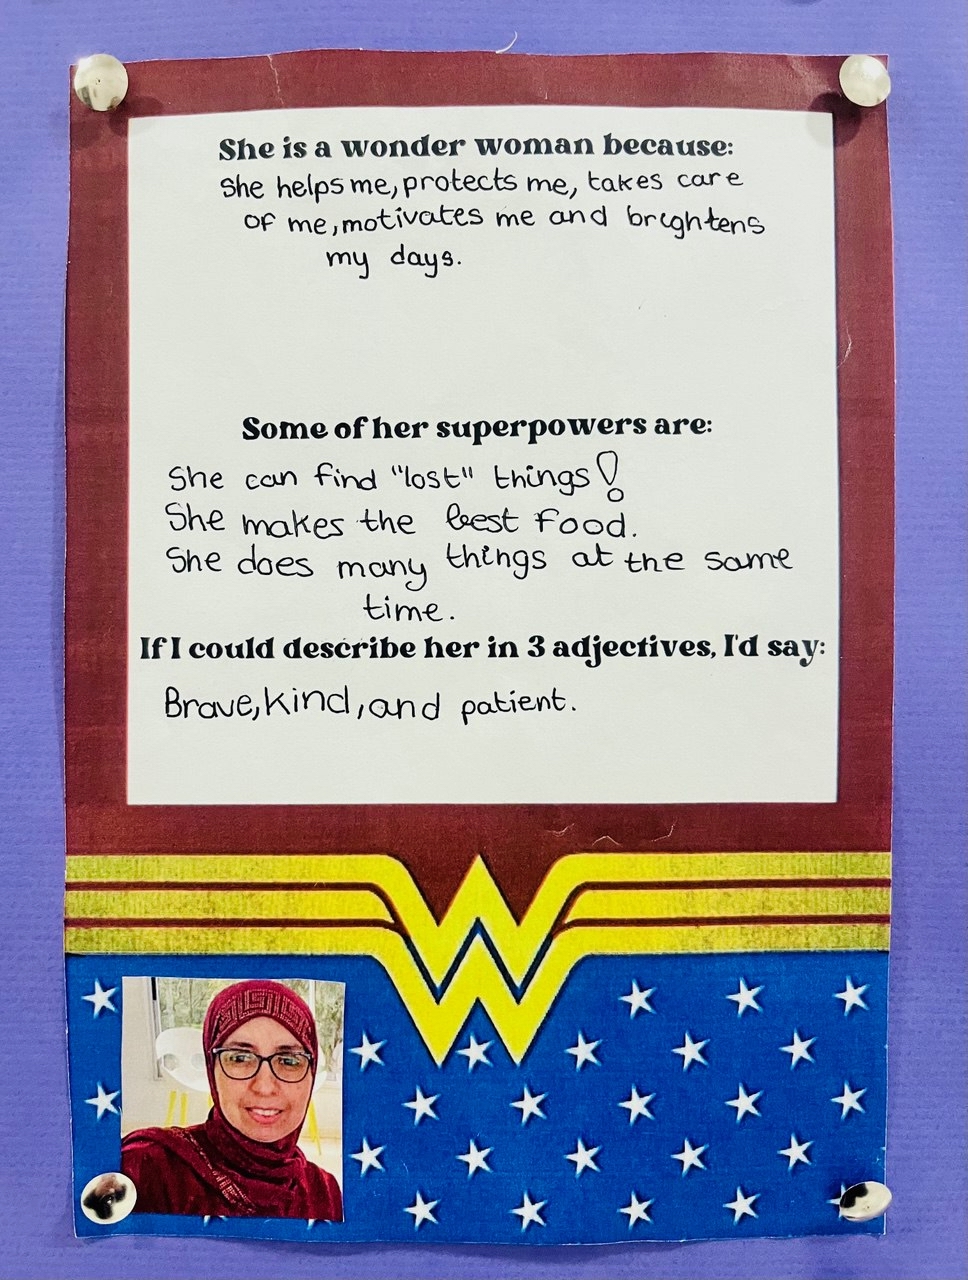 She is a wonder woman because:
She helps me, protects me, takes care
of me, motivates me and brightens
my days.
Some of her superpowers are:
She can find "lost" things!
She makes the best food.
She does many things at the same
time.
If I could describe her in 3 adjectives, I'd say:
Brave, kind, and patient.